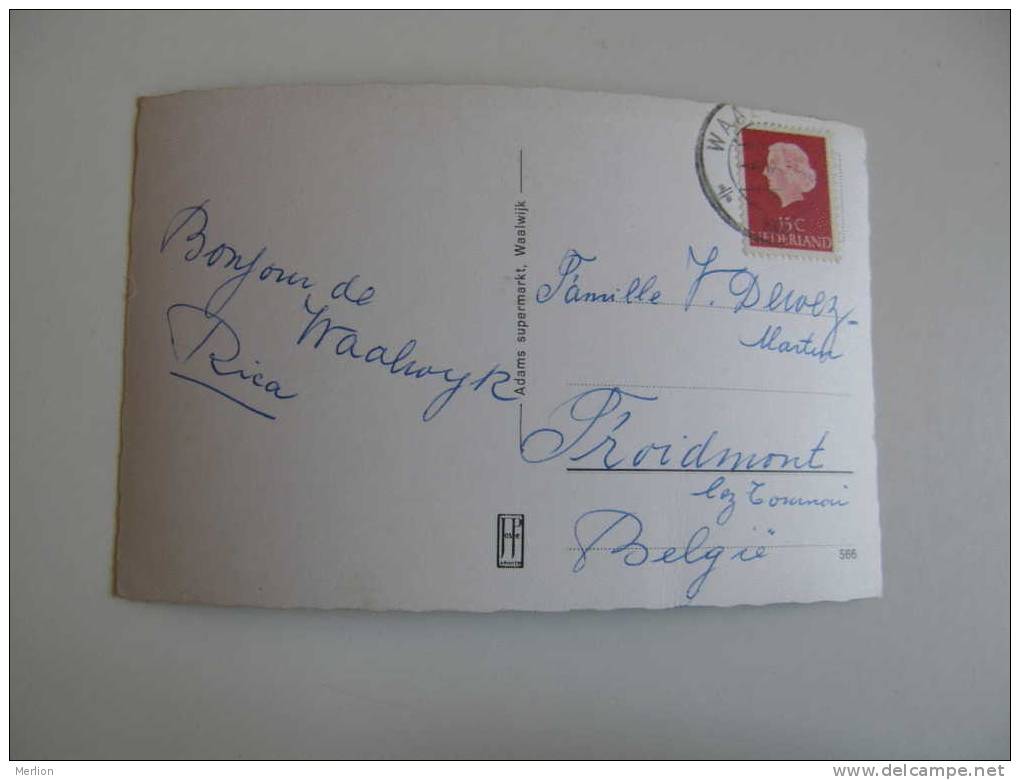 Bonjour de
Waalwyk
Rica
Adams supermarkt, Waalwijk
WAA
15 C
NEDERLAND
Famille V. Dewez-
Martin
Froidmont
lez Tournai
België
JosPé
566
Merlion
www.delcampe.net